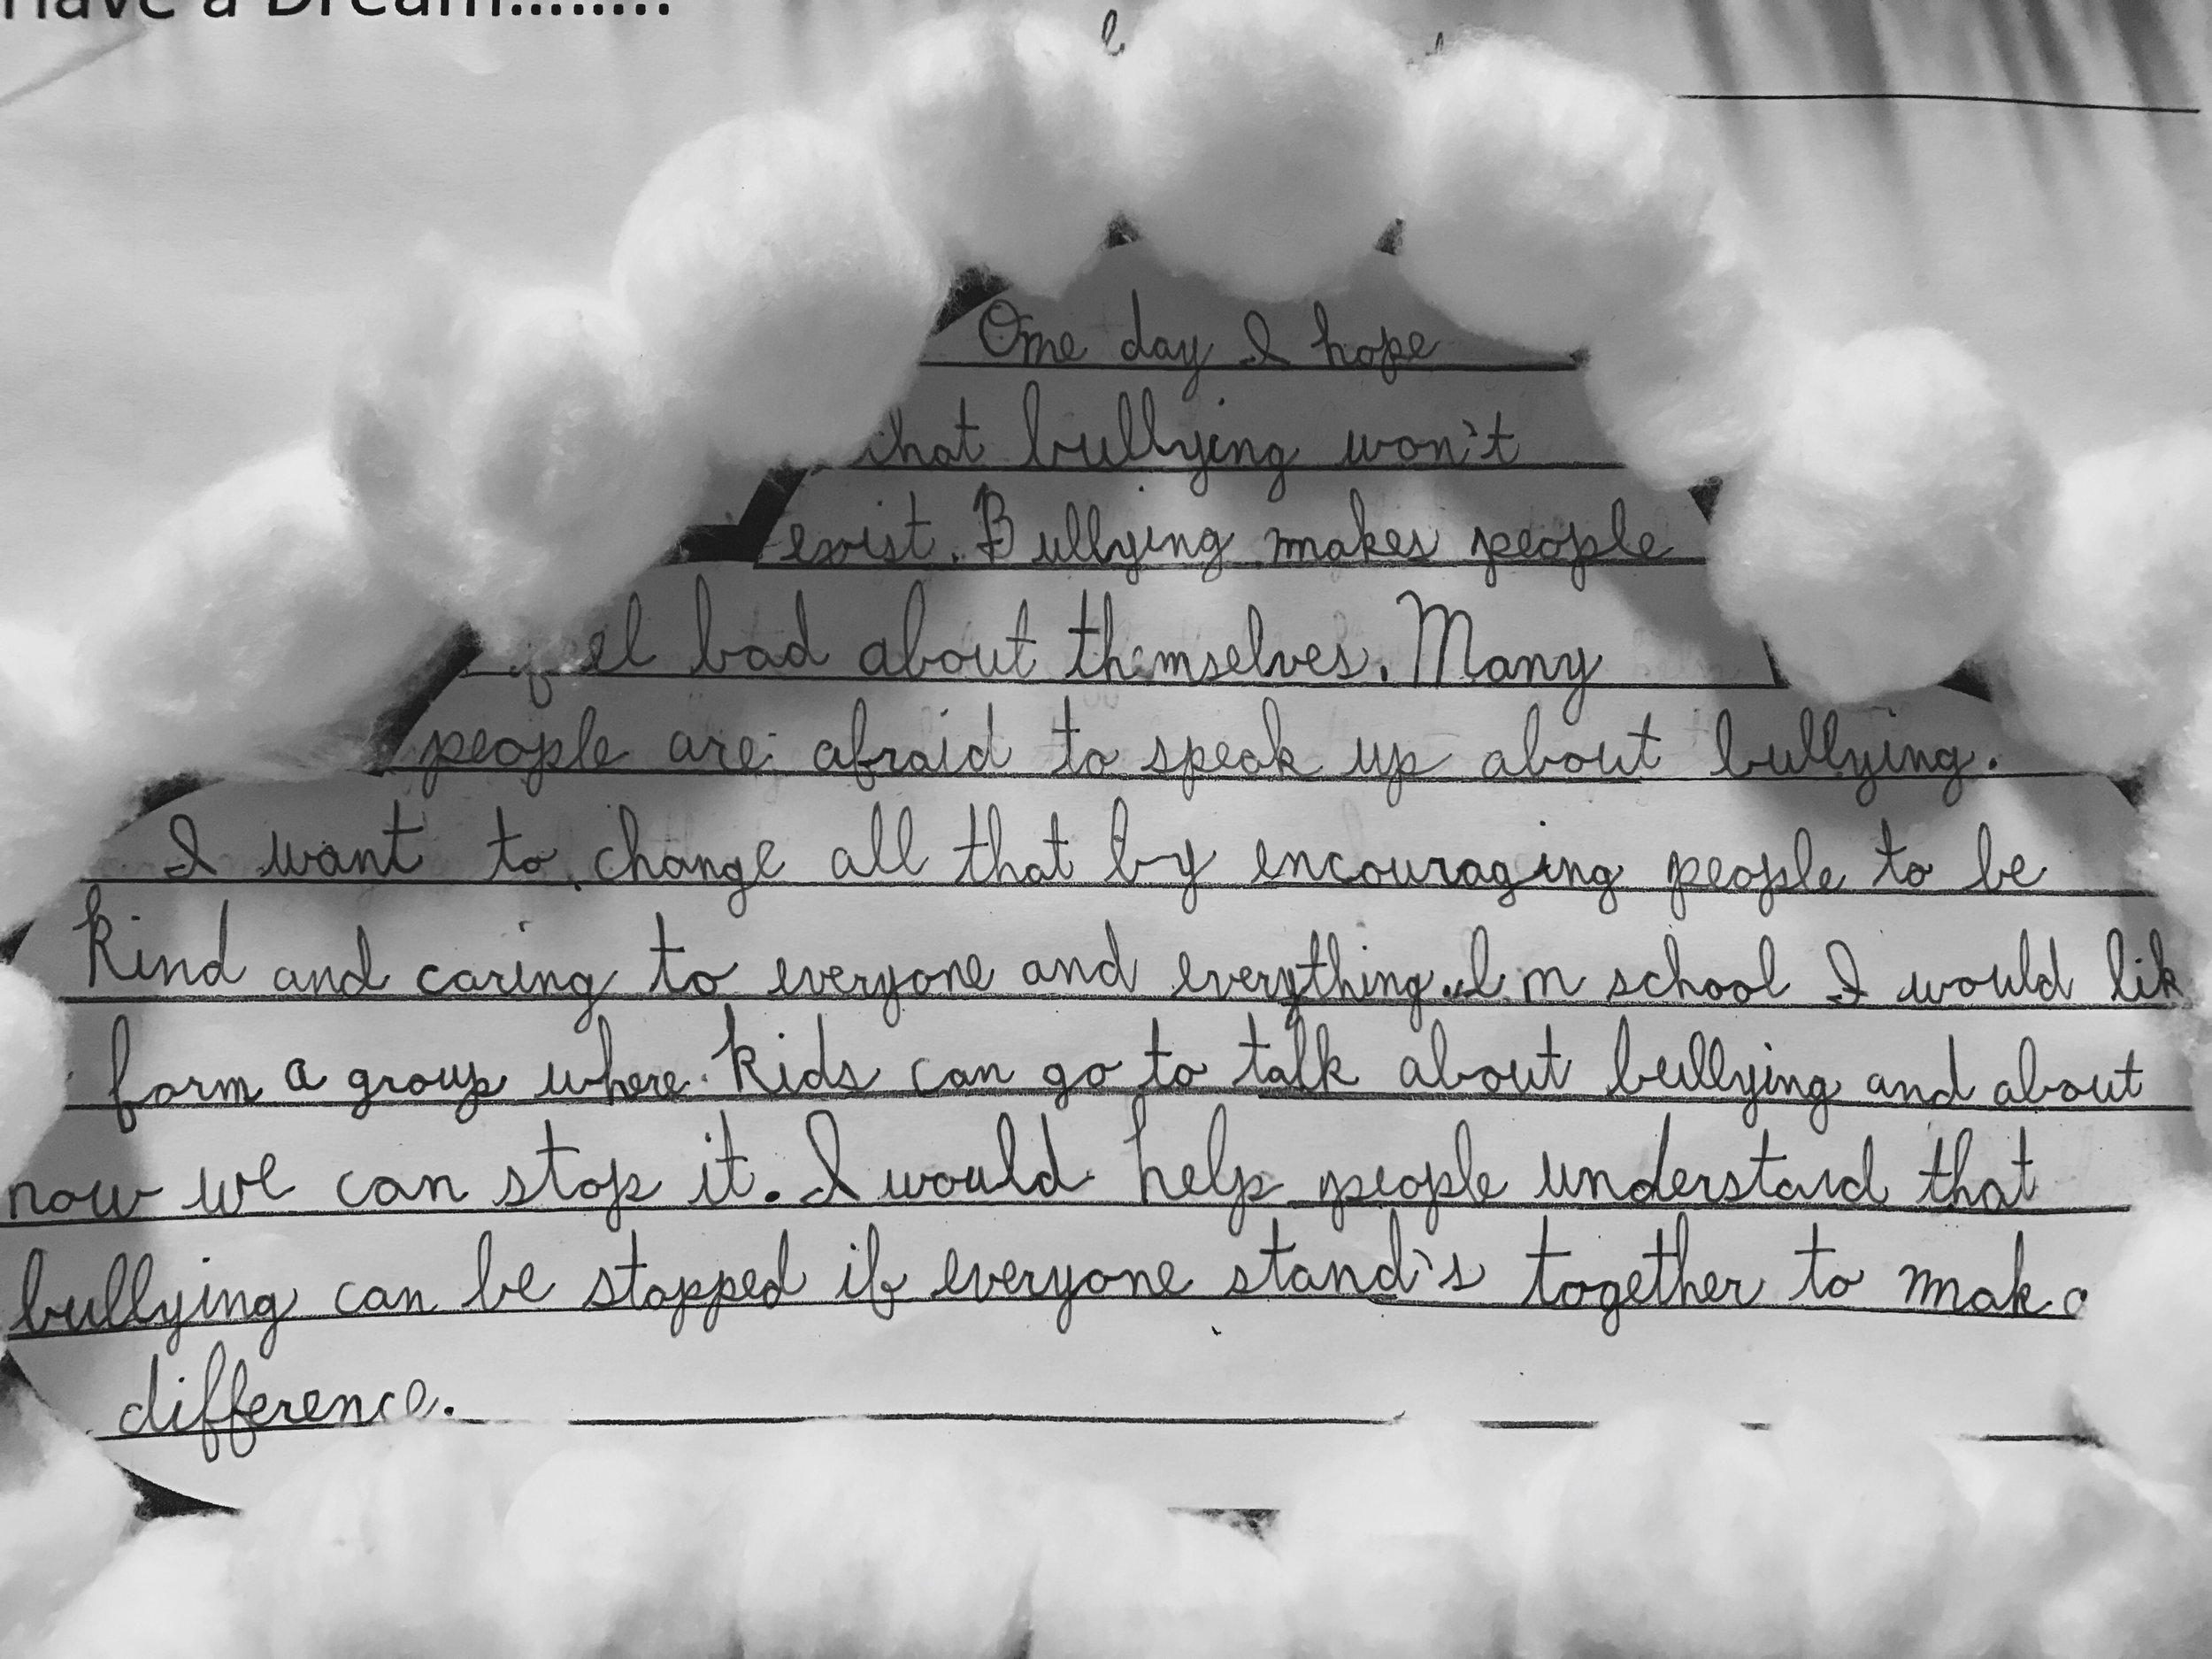 Have a Dream........
One day I hope
that bullying won't
exist. Bullying makes people
feel bad about themselves. Many
people are afraid to speak up about bullying.
I want to change all that by encouraging people to be
kind and caring to everyone and everything. In school I would lik
form a group where kids can go to talk about bullying and about
how we can stop it. I would help people understand that
bullying can be stopped if everyone stand's together to mak a
difference.